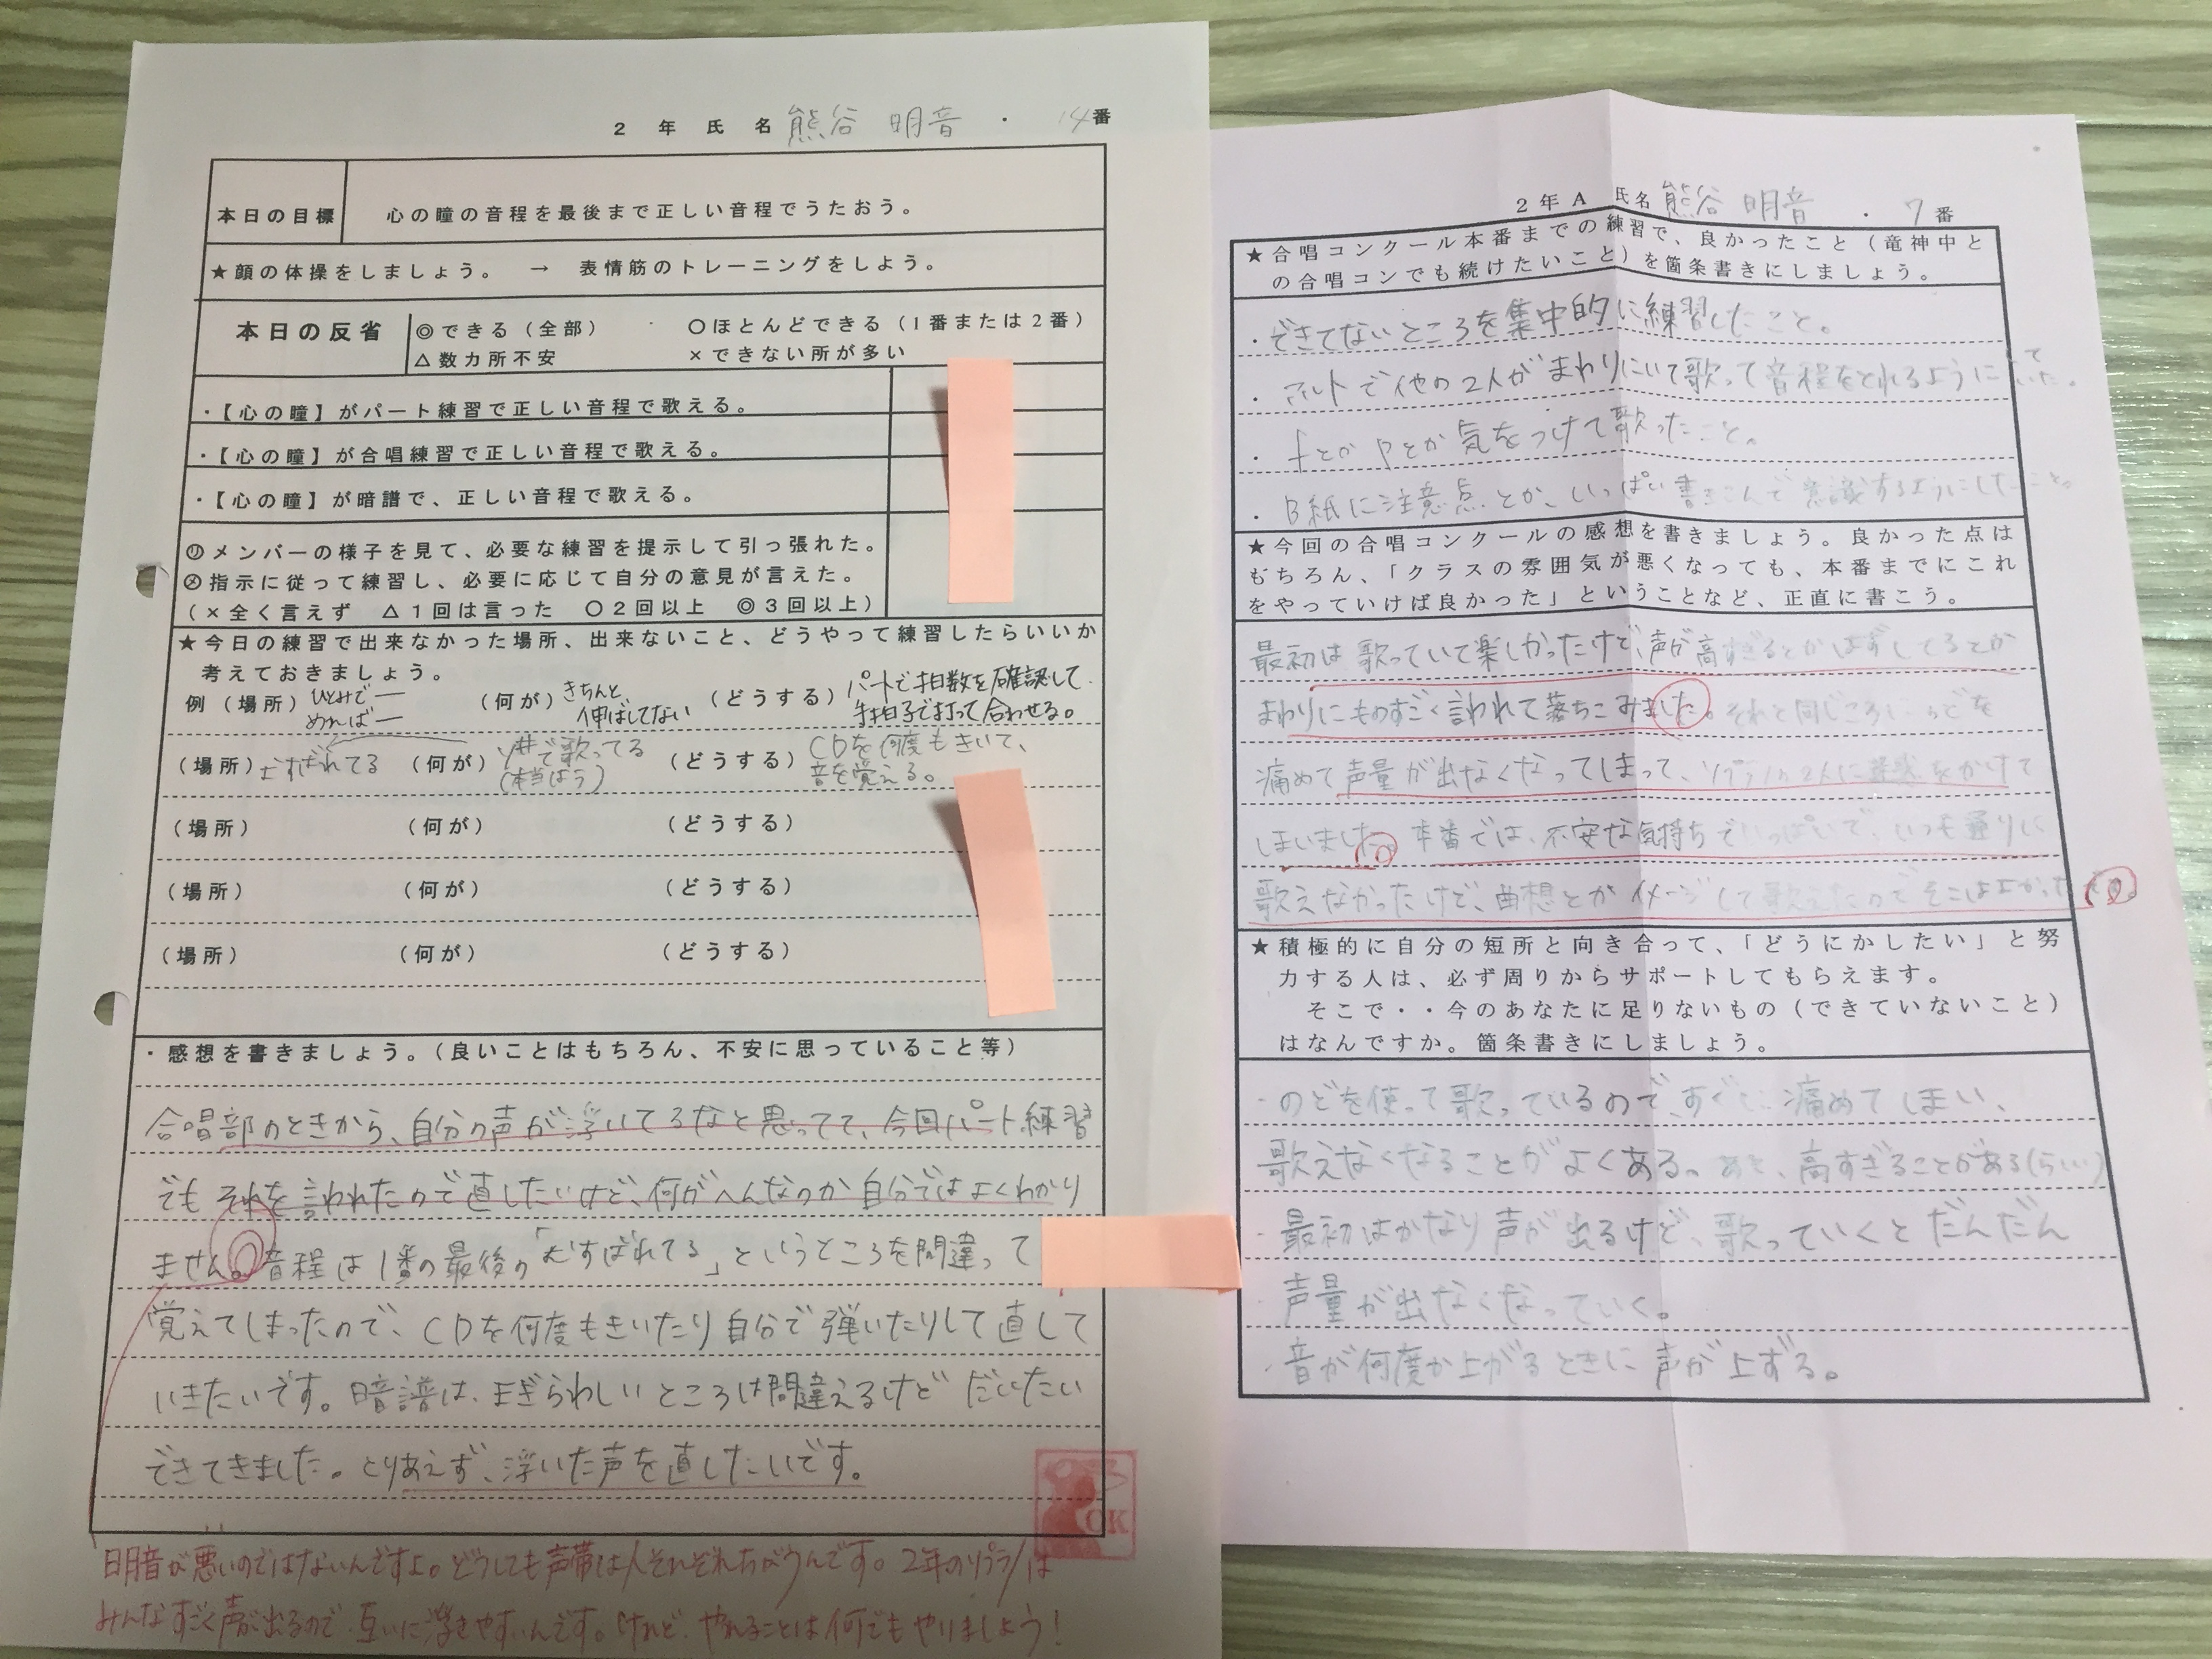 2年氏名 熊谷 明音 ・ 14番
本日の目標 心の瞳の音程を最後まで正しい音程でうたおう。
★顔の体操をしましょう。 → 表情筋のトレーニングをしよう。
本日の反省 ◎できる(全部) ○ほとんどできる(1番または2番)
△数カ所不安 ×できない所が多い
・【心の瞳】がパート練習で正しい音程で歌える。
・【心の瞳】が合唱練習で正しい音程で歌える。
・【心の瞳】が暗譜で、正しい音程で歌える。
㋷メンバーの様子を見て、必要な練習を提示して引っ張れた。
㋱指示に従って練習し、必要に応じて自分の意見が言えた。
(×全く言えず △1回は言った ○2回以上 ◎3回以上)
★今日の練習で出来なかった場所、出来ないこと、どうやって練習したらいいか
考えておきましょう。
例(場所)ひとみで― めれば― (何が)きちんと、伸ばしてない (どうする)パートで拍数を確認して手拍子で打って合わせる。
(場所)むすばれてる (何が)ソ#で歌ってる(本当はラ) (どうする)CDを何度もきいて、音を覚える。
(場所) (何が) (どうする)
(場所) (何が) (どうする)
(場所) (何が) (どうする)
・感想を書きましょう。(良いことはもちろん、不安に思っていること等)
合唱部のときから、自分の声が浮いてるなと思ってて、今回パート練習
でもそれを言われたので直したいけど、何がへんなのか自分ではよくわかり
ません。音程は1番の最後の「むすばれてる」というところを間違って
覚えてしまったので、CDを何度もきいたり自分で弾いたりして直して
いきたいです。暗譜は、まぎらわしいところは間違えるけどだいたい
できてきました。とりあえず、浮いた声を直したいです。
OK
明音が悪いのではないんですよ。どうしても声帯は人それぞれちがうんです。2年のソプラノは
みんなすごく声が出るので、互いに浮きやすいんです。けれど、やれることは何でもやりましょう!
2年A 氏名 熊谷 明音 ・ 7番
★合唱コンクール本番までの練習で、良かったこと(竜神中と
の合唱コンでも続けたいこと)を箇条書きにしましょう。
・できてないところを集中的に練習したこと。
・アルトで他の2人がまわりにいて歌って音程をとれるようにしていた。
・fとかpとか気をつけて歌ったこと。
・B紙に注意点とか、いっぱい書きこんで意識するようにしたこと。
★今回の合唱コンクールの感想を書きましょう。良かった点は
もちろん、「クラスの雰囲気が悪くなっても、本番までにこれ
をやっていけば良かった」ということなど、正直に書こう。
最初は歌っていて楽しかったけど、声が高すぎるとかはずしてるとか
まわりにものすごく言われて落ちこみました。それと同じころにのどを
痛めて声量が出なくなってしまって、ソプラノの2人に迷惑をかけて
しまいました。本番では、不安な気持ちでいっぱいで、いつも通りに
歌えなかったけど、曲想とかイメージして歌えたのでそこはよかったです。
★積極的に自分の短所と向き合って、「どうにかしたい」と努
力する人は、必ず周りからサポートしてもらえます。
そこで・・今のあなたに足りないもの(できていないこと)
はなんですか。箇条書きにしましょう。
・のどを使って歌っているので、すぐに痛めてしまい、
歌えなくなることがよくある。あと、高すぎることがある(らしい)
・最初はかなり声が出るけど、歌っていくとだんだん
声量が出なくなっていく。
・音が何度か上がるときに声が上ずる。